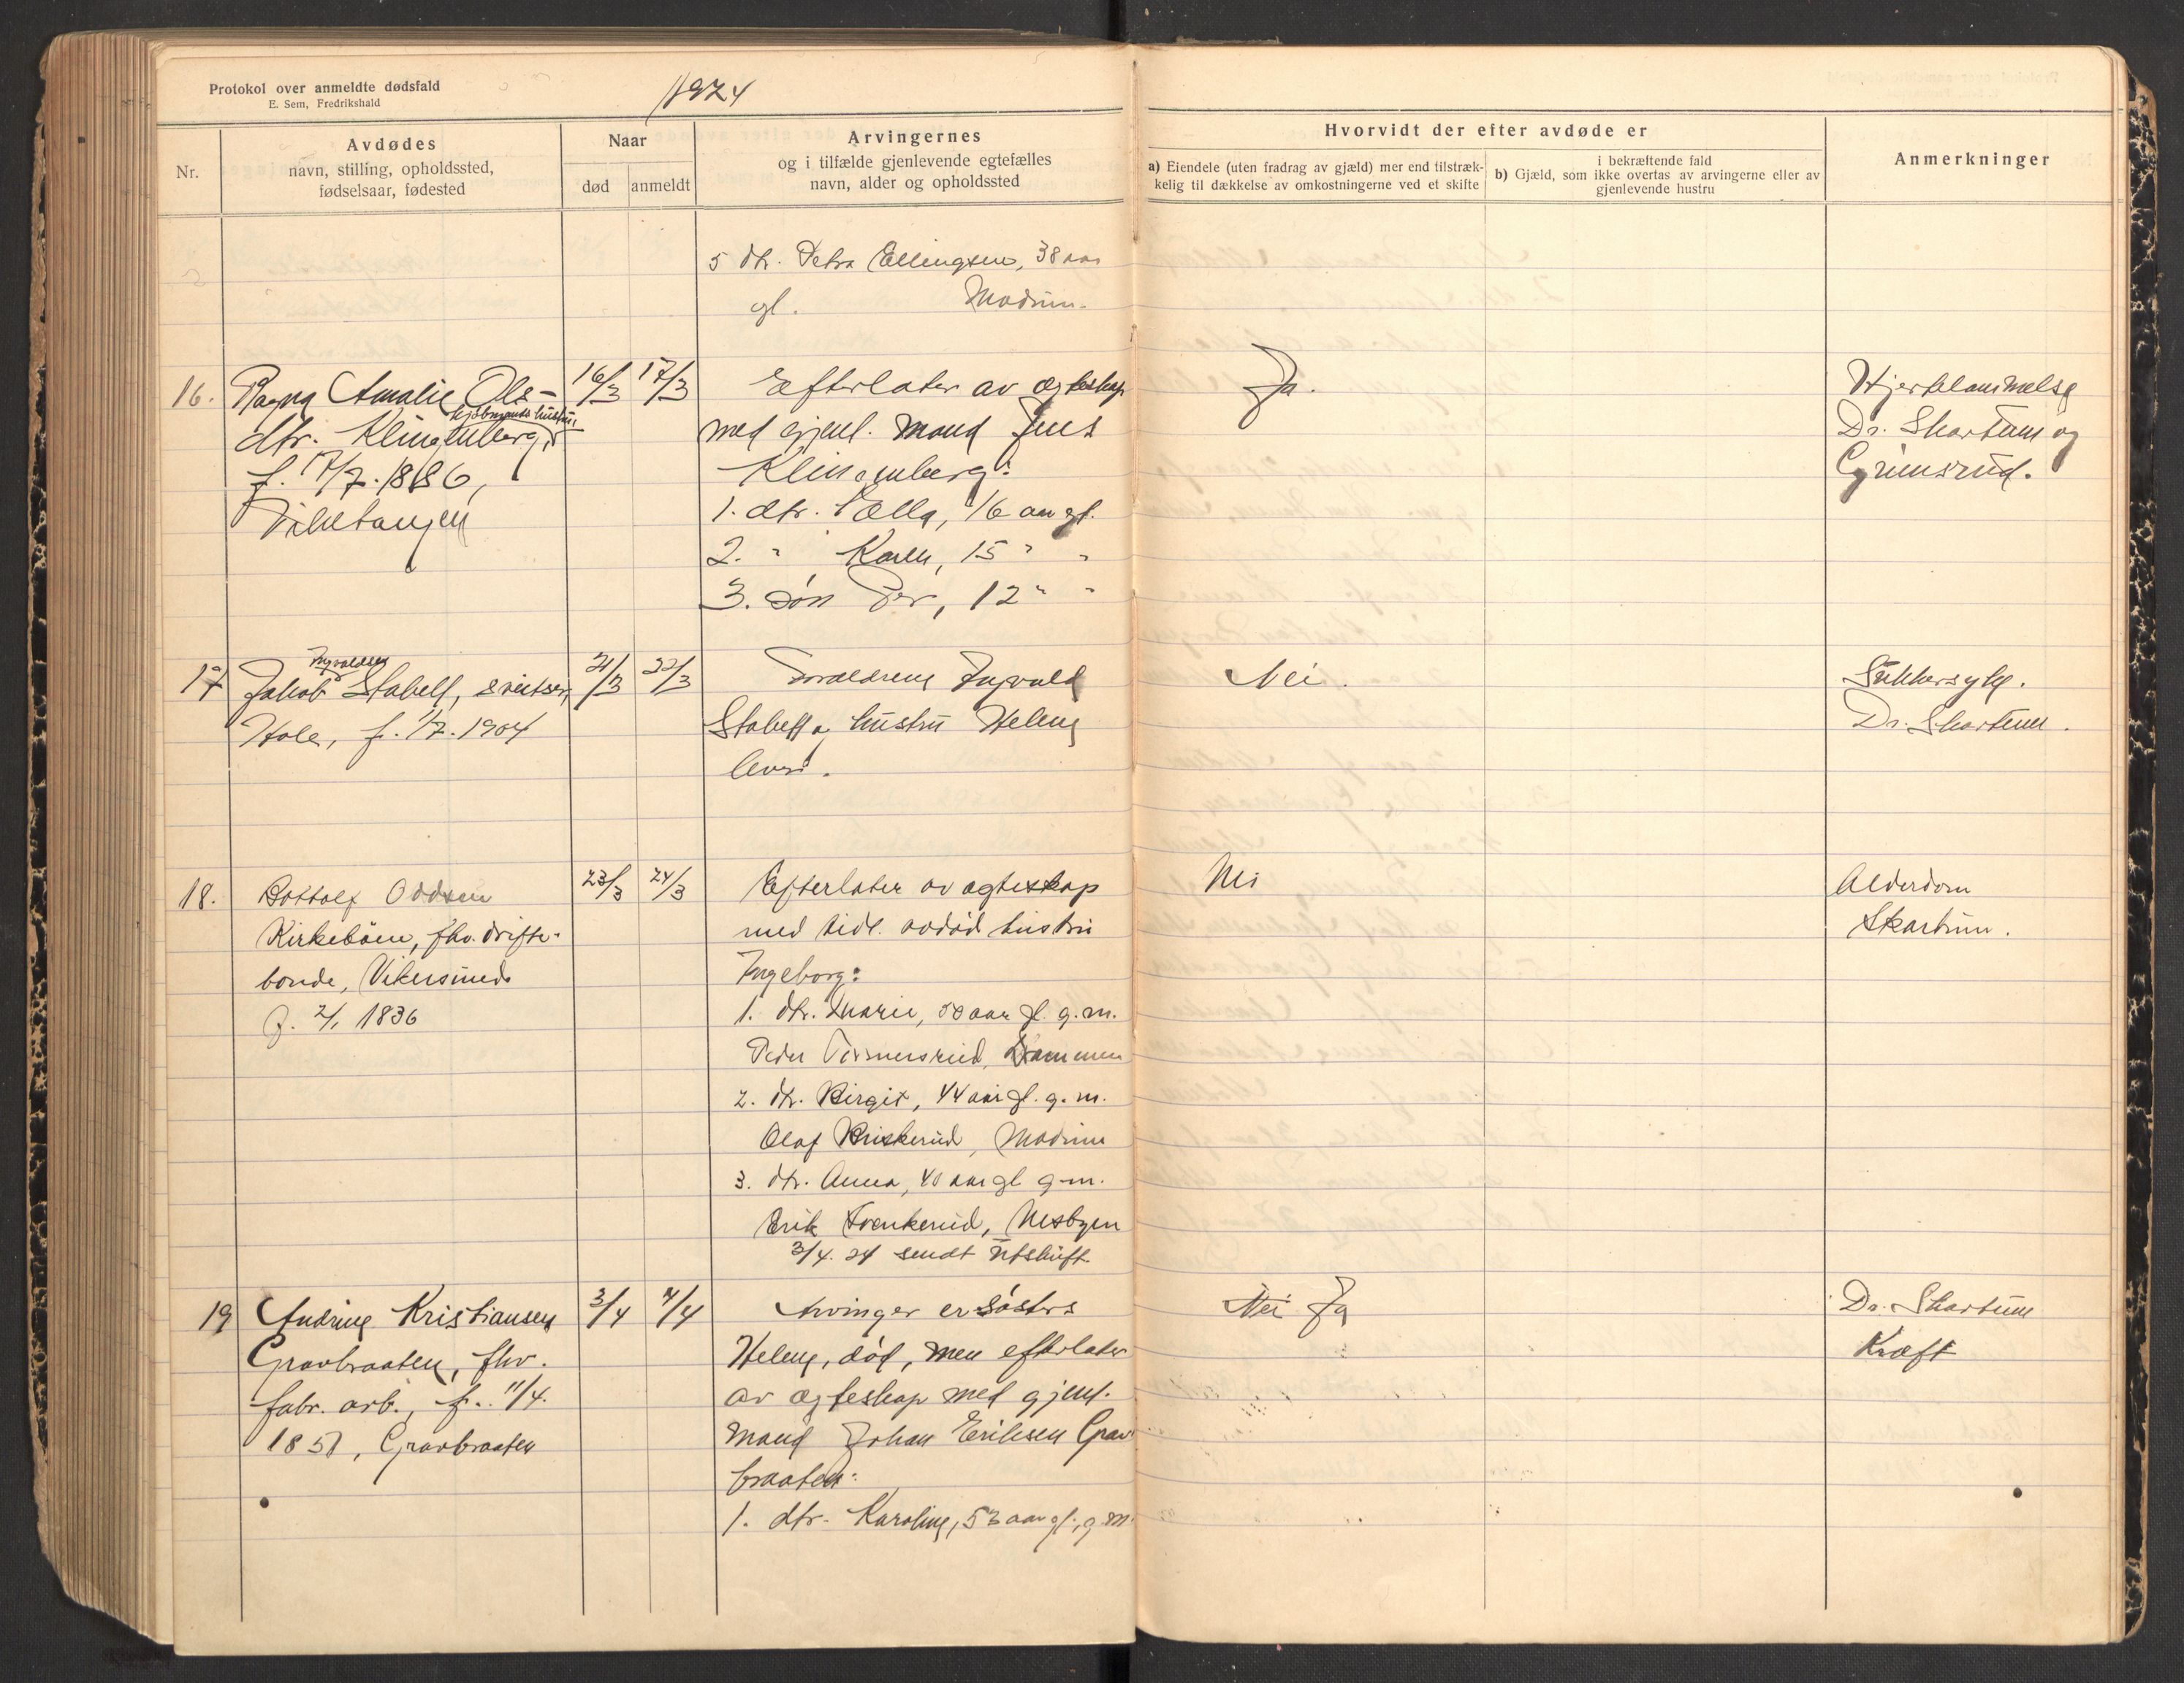 Protokol over anmeldte dødsfald
E. Sem, Fredrikshald
1924
Nr.
Avdødes
navn, stilling, opholdssted,
fødselsaar, fødested
Naar
død
anmeldt
Arvingernes
og i tilfælde gjenlevende egtefælles
navn, alder og opholdssted
Hvorvidt der efter avdøde er
a) Eiendele (uten fradrag av gjæld) mer end tilstræk-
kelig til dækkelse av omkostningerne ved et skifte
i bekræftende fald
b) Gjæld, som ikke overtas av arvingerne eller av
gjenlevende hustru
Anmerkninger
5 dtr. Petra Ellingsen, 38 aar
gl. Modum.
16. Ragna Amalie Ols-
kjøbmands hustru,
dtr. Klingenberg,
f. 17/7. 1886,
Viketangen
16/3 17/3
Efterlater av egteskap
med gjenl. mand Jens
Klingenberg:
1. dtr. Ella, 16 aar gl.
2. " Karen, 15 " "
3. søn Per, 12 " "
Ja.
Hjertelammelse
Dr. Skartum og
Grimsrud.
17 Jakob Ingvaldsen Stabell, sveitser,
Hole, f. 1/7. 1904
21/3 22/3
Forældrene Ingvald
Stabell o hustru Helene
lever.
Nei.
Sukkersyke.
Dr. Skartum.
18. Bottolf Oddsen
Kirkebøen, fhv. drifte-
bonde, Vikersund
f. 2/1 1836
23/3 24/3
Efterlater av egteskap
med tidl. avdød hustru
Ingeborg:
1. dtr. Marie, 50 aar gl. g. m.
Peder Tormersrud, Drammen
2. dtr. Birgit, 44 aar gl. g. m.
Olaf Briskerud, Modum
3. dtr. Anna, 40 aar gl g.m.
Erik Svenkerud, Nesbyen
3/4. 24 sendt utskrift
Nei
Alderdom
Skartum.
19 Andrine Kristiansen
Gravbraaten, fhv.
fabr. arb., f. 11/4.
1851, Gravbraaten
3/4 4/4
Arvinger er søsters
Helene, død, men efterlater
av egteskap med gjenl.
mand Johan Eriksen Grav
braaten:
1. dtr. Karoline, 53 aar gl., g.m.
Nei Ja
Dr. Skartum
Kræft